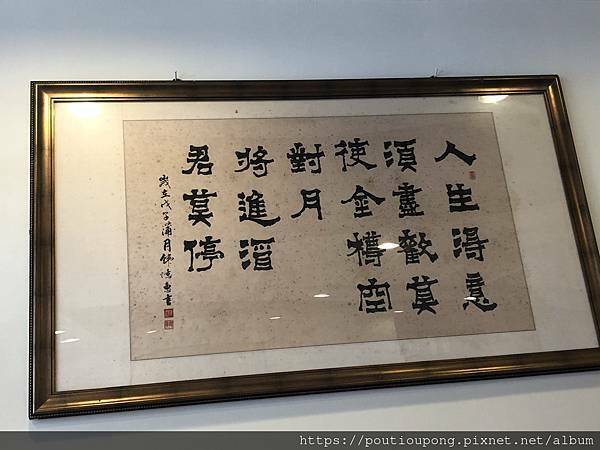 人生得意
須盡歡莫
使金樽空
對月
將進酒
君莫停
歲在戊子蒲月書
https://poutioupong.pixnet.net/album